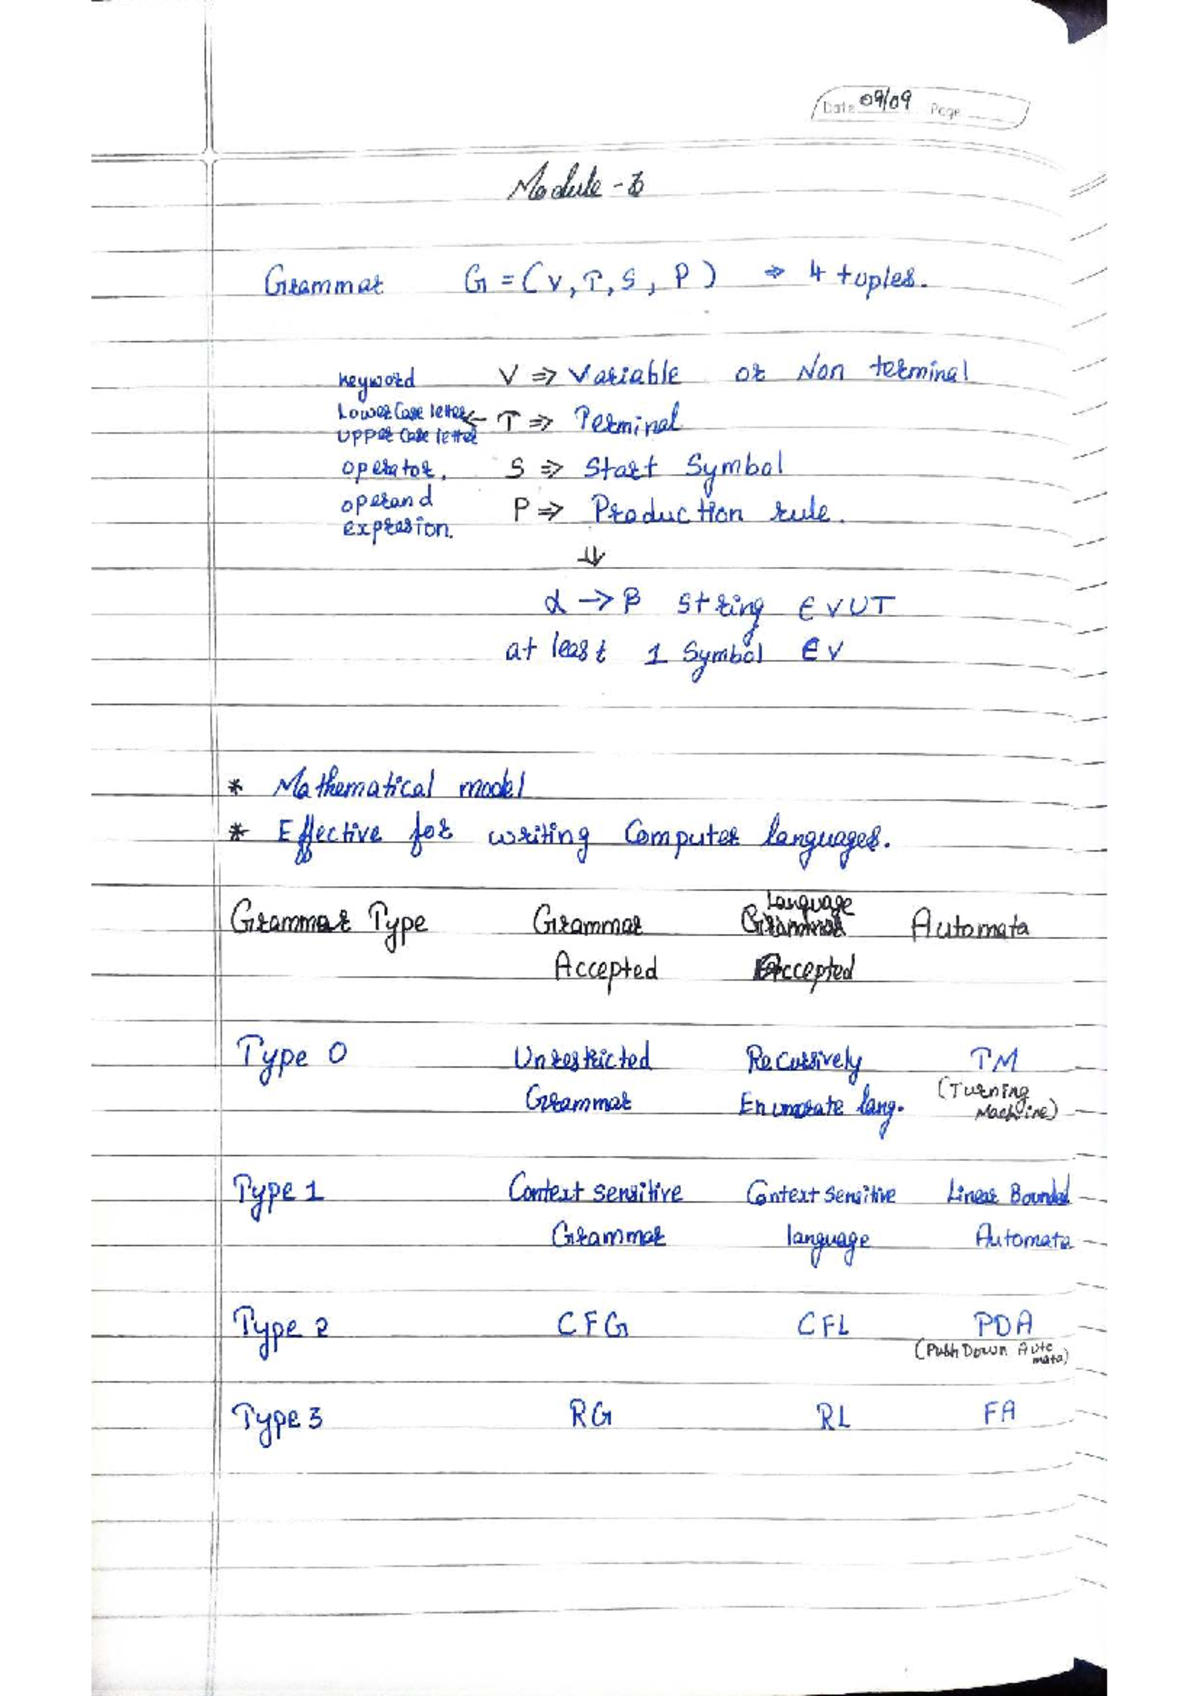 Date 09/09 Page
Module - 3
Grammar G = (V, T, S, P) ⇒ 4 tuples.
keyword V ⇒ Variable or Non terminal
Lower Case letter ← T ⇒ Terminal
Upper Case letter
operator, S ⇒ Start Symbol
operand P ⇒ Production rule.
expresion.
⇓
α → β string ∈ V U T
at least 1 Symbol ∈ V
* Mathematical model
* Effective for writing Computer languages.
Grammar Type Grammar Language Automata
Accepted Accepted
Type 0 Unrestricted Recursively TM
Grammar Enumerate lang. (Turning Machine)
Type 1 Context sensitive Context sensitive Linear Bounded
Grammar language Automata
Type 2 CFG CFL PDA
(Push Down Automata)
Type 3 RG RL FA